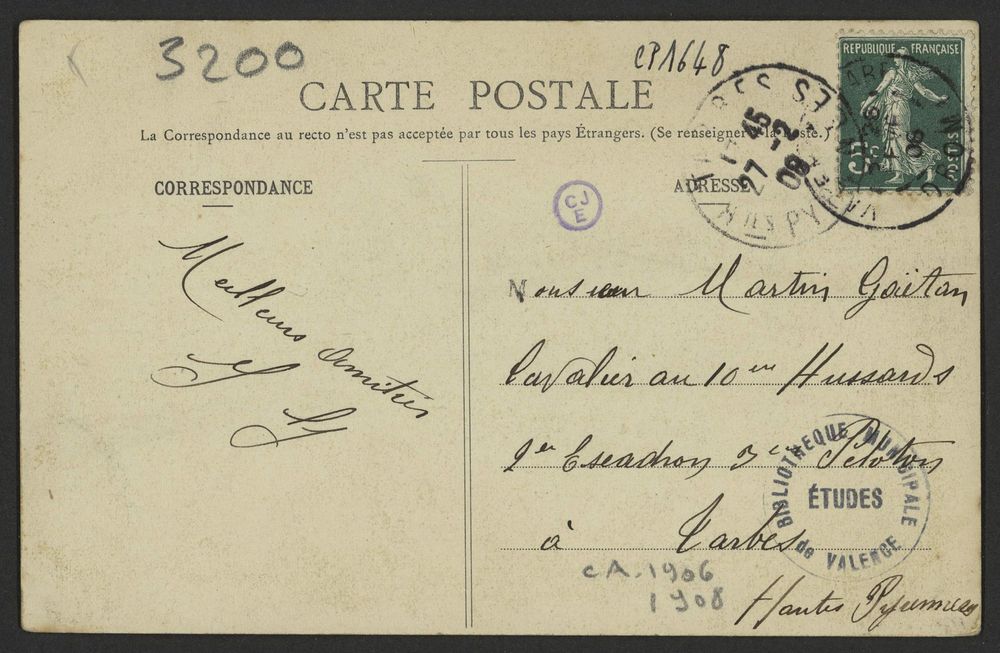 3200
CP1648
CARTE POSTALE
La Correspondance au recto n'est pas acceptée par tous les pays Étrangers. (Se renseigner à la Poste.)
CORRESPONDANCE
ADRESSE
REPUBLIQUE FRANÇAISE
TARBES
27 -2
08
CJ
E
Meilleurs Amitiés
Monsieur Martin Gaëtan
Cavalier au 10em Hussards
Escadron 3em Peloton
à Tarbes
Hautes Pyrennees
BIBLIOTHEQUE MUNICIPALE
ÉTUDES
de VALENCE
CA. 1906
1908